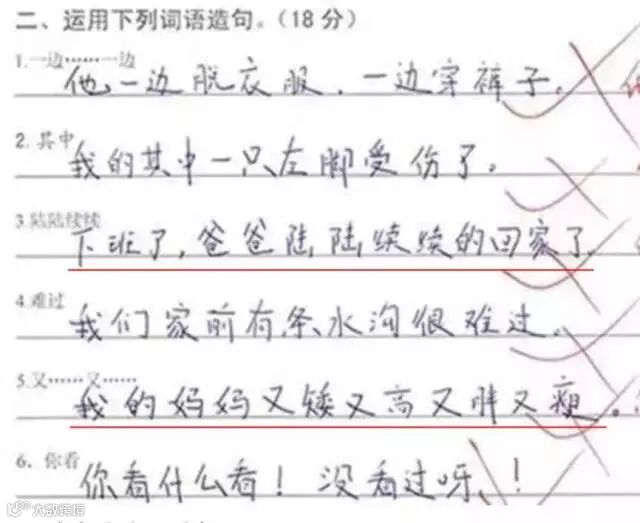 二、运用下列词语造句。（18分）
1.一边……一边
他一边脱衣服，一边穿裤子。
2.其中
我的其中一只左脚受伤了。
3.陆陆续续
下班了，爸爸陆陆续续的回家了
4.难过
我们家前有条水沟很难过。
5.又……又……
我的妈妈又矮又高又胖又瘦。
6．你看
你看什么看！没看过呀！
大数跨境